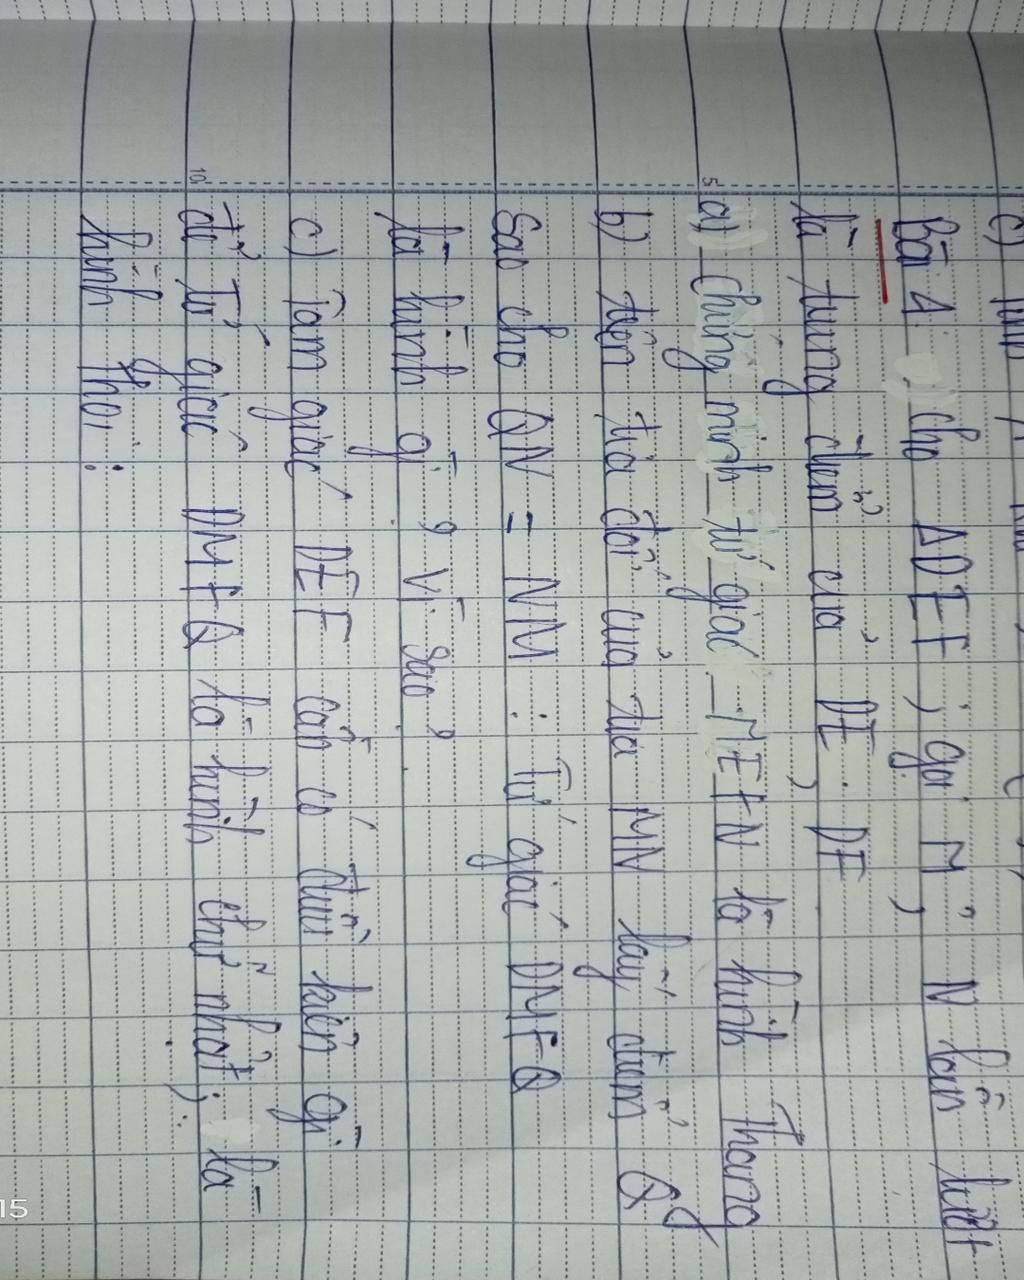 Bài 1: cho ΔDEF ; gọi M, N lần lượt
là trung điểm của DE, DF
a) chứng minh tứ giác MEFN là hình thang
b) trên tia đối của tia MN lấy điểm Q
sao cho QN = NM : Tứ giác DMFQ
là hình gì ? Vì sao ?
c) Tam giác DEF cần có điều kiện gì
để Tứ giác DMFQ là hình chữ nhật ; là
hình thoi :
5
10
15